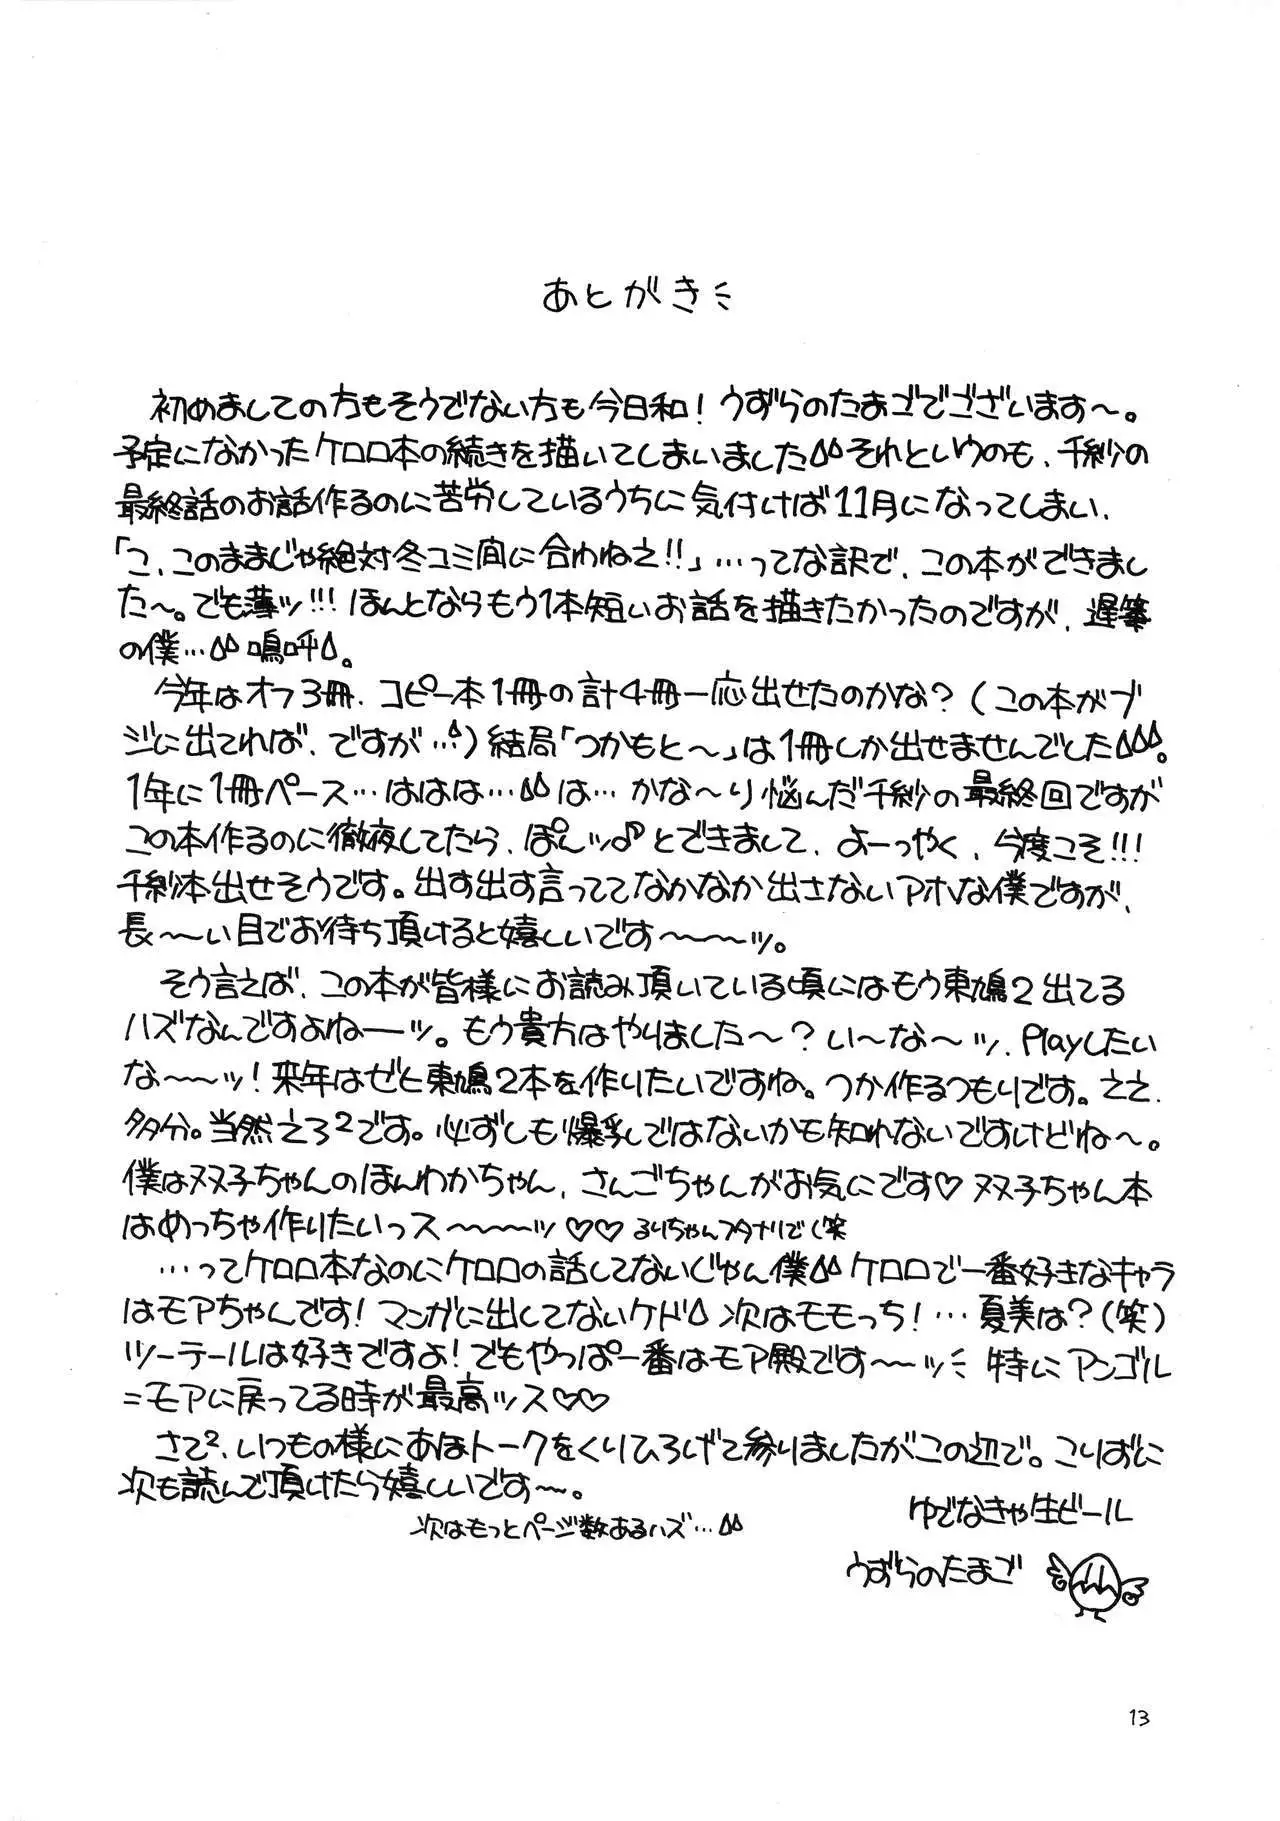 あとがき
初めましての方もそうでない方も今日和！うずらのたまごでございます〜。
予定になかったケロロ本の続きを描いてしまいましたそれというのも、千紗の
最終話のお話作るのに苦労しているうちに気付けば11月になってしまい、
「こ、このままじゃ絶対冬コミ間に合わねえ!!」…ってな訳で、この本ができまし
た〜。でも薄ッ!!! ほんとならもう1本短いお話を描きたかったのですが、遅筆
の僕…嗚呼。
今年はオフ3冊、コピー本1冊の計4冊一応出せたのかな？（この本がブ
ジに出てれば、ですが…）結局「つかもと〜」は1冊しか出せませんでした。
1年に1冊ペース…ははは…は…かな〜り悩んだ千紗の最終回ですが
この本作るのに徹夜してたら、ぽんッ♪とできまして、よーっやく、今度こそ!!!
千紗本出せそうです。出す出す言っててなかなか出さないアホな僕ですが、
長〜〜い目でお待ち頂けると嬉しいです〜〜〜ッ。
そう言えば、この本が皆様にお読み頂いている頃にはもう東鳩2出てる
ハズなんですよねーーッ。もう貴方はやりました〜？い〜な〜ッ、Playしたい
な〜〜ッ！来年はぜひ東鳩2本を作りたいですね。つか作るつもりです。ええ、
多分。当然えろ²です。必ずしも爆乳ではないかも知れないですけどね〜。
僕は双子ちゃんのほんわかちゃん、さんごちゃんがお気にです♡双子ちゃん本
はめっちゃ作りたいっス〜〜〜ッ♡♡るりちゃんフタナリで（笑
…ってケロロ本なのにケロロの話してないじゃん僕ケロロで一番好きなキャラ
はモアちゃんです！マンガに出してないケド次はモモっち！…夏美は？（笑）
ツーテールは好きですよ！でもやっぱ一番はモア殿です〜〜ッ特にアンゴル
=モアに戻ってる時が最高ッス♡♡
さて²、いつもの様にあほトークをくりひろげて参りましたがこの辺で。こりずに
次も読んで頂けたら嬉しいです〜。
次はもっとページ数あるハズ…
ゆでなきゃ生ビール
うずらのたまご
13